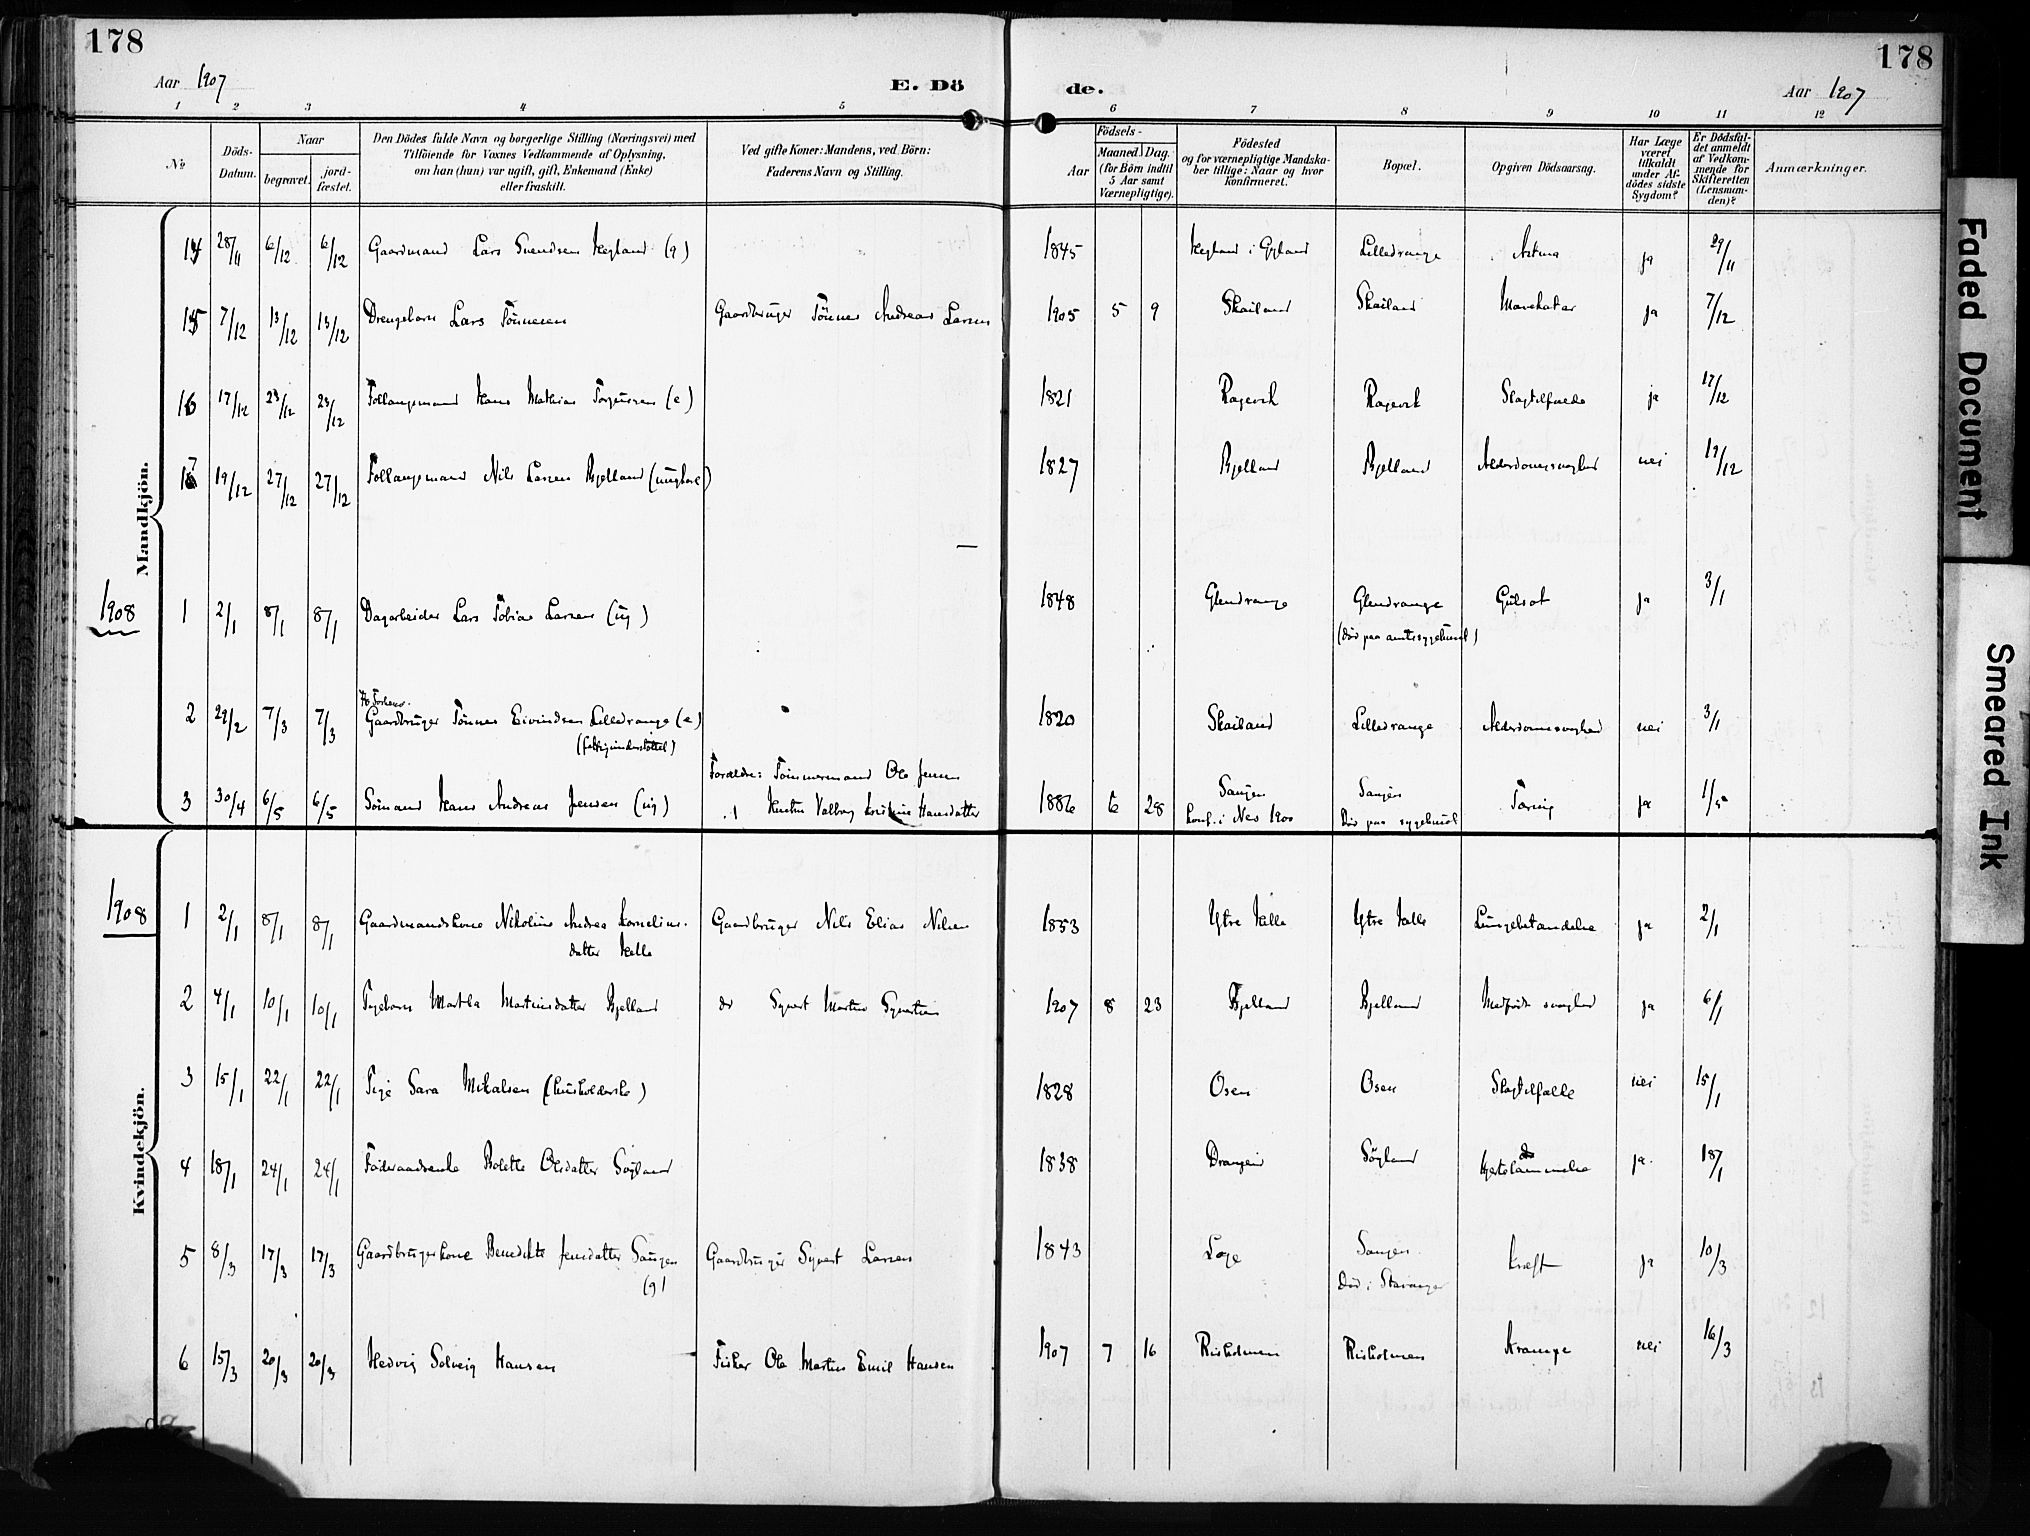 178
178
Aar 1907
E. Dö
de.
Aar 1907
1 2 3 4 5 6 7 8 9 10 11 12
№
Döds-
Datum.
Naar
begravet.
jord-
fæstet.
Den Dödes fulde Navn og borgerlige Stilling (Næringsvei) med
Tilföiende for Voxnes Vedkommende af Oplysning,
om han (hun) var ugift, gift, Enkemand (Enke)
eller fraskilt.
Ved gifte Koner: Mandens, ved Börn:
Faderens Navn og Stilling.
Födsels-
Aar
Maaned.
Dag.
(for Börn indtil
5 Aar samt
Værnepligtige).
Födested
og for værnepligtige Mandska-
ber tillige: Naar og hvor
konfirmeret.
Bopæl.
Opgiven Dödsaarsag.
Har Læge
været
tilkaldt
under Af-
dödes sidste
Sygdom?
Er Dödsfal-
det anmeldt
af Vedkom-
mende for
Skifteretten
(Lensman-
den)?
Anmærkninger.
Mandkjön.
14 28/11 6/12 6/12 Gaardmand Lars Svendsen Hegland (g) 1845 Hegland i Gyland Lilledrange Astma ja 29/11
15 7/12 13/12 13/12 Drengebarn Lars Tönnesen Gaardbruger Tönnes Andreas Larsen 1905 5 9 Skailand Skailand Mavekatar ja 7/12
16 17/12 23/12 23/12 Follaugsmand Hans Mathias (e) 1821 Ragevik Ragevik Slagtilfælde ja 17/12
17 19/12 27/12 27/12 Follaugsmand Nils Larsen Bjelland (ungkarl) 1827 Bjelland Bjelland Alderdomssvaghed nei 19/12
1908
1 2/1 8/1 8/1 Dagarbeider Lars Tobias Larsen (ug) 1848 Glendrange Glendrange Gulsot ja 3/1
(död paa amtssygehuset)
2 29/2 7/3 7/3 Gaardbruger Tönnes Eivindsen Lilledrange (e) 1820 Skailand Lilledrange Alderdomssvaghed nei 3/1
(fattigunderstöttet)
Forældre: Tömmermand Ole Jensen
3 30/4 6/5 6/5 Sömand Hans Andreas Jensen (ug) Valborg Kristine Hansdatter 1886 6 28 Sangen Sangen Tæring ja 1/5
konf. i Nes 1900 Död paa sygehuset
Kvindekjön.
1908
1 2/1 8/1 8/1 Gaardmandskone Nikoline Andrea Kornelius- Gaardbruger Nils Elias Nilsen 1853 Ytre Kalle Ytre Kalle Lungebetændelse ja 2/1
datter Kalle
2 4/1 10/1 10/1 Pigebarn Martha Martinsdatter Bjelland do Syvert Martin Syvertsen 1907 8 23 Bjelland Bjelland Medfödt svaghed ja 6/1
3 15/1 22/1 22/1 Pige Sara Mikalsen (husholderske) 1828 Osen Osen Slagtilfælde nei 15/1
4 18/1 24/1 24/1 Föderaadsenke Bolette Olsdatter Söyland 1838 Drangeid Söyland Hjertelammelse ja 18/1
5 8/3 17/3 17/3 Gaardbrugerkone Benedikte Jensdatter Sangen Gaardbruger Syvert Larsen 1843 Loge Sangen Kræft ja 10/3
(g) Död i Stavanger
6 15/3 20/3 20/3 Hedvig Solveig Hansen Fisker Ole Martin Emil Hansen 1907 7 16 Risholmen Risholmen Krampe nei 16/3
Faded Document
Smeared Ink